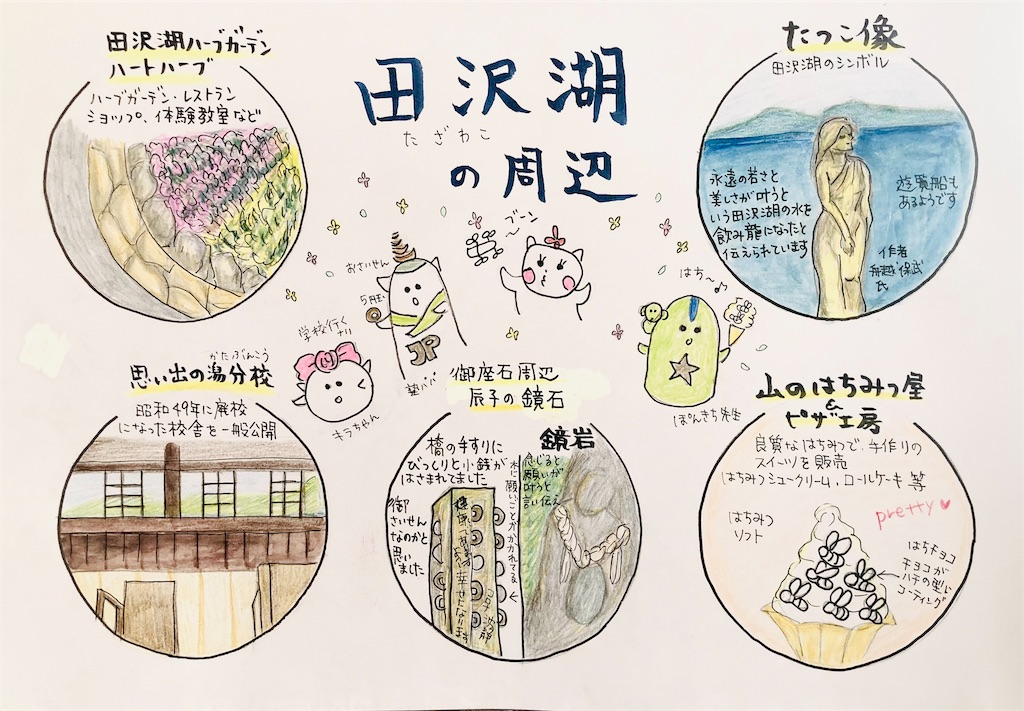 田沢湖
たざわこ
の周辺
田沢湖ハーブガーデン
ハートハーブ
ハーブガーデン・レストラン
ショップ、体験教室など
たつこ像
田沢湖のシンボル
永遠の若さと
美しさが叶うと
いう田沢湖の水を
飲み龍になったと
伝えられています
遊覧船も
あるようです
作者
舟越保武
氏
ブーン
〜
おさいせん
5円玉
JP
はち〜♪
学校行く
キラちゃん
ぽんきち先生
思い出の潟分校
かたぶんこう
昭和49年に廃校
になった校舎を一般公開
御座石周辺
辰子の鏡石
橋の手すりに
びっくりと小銭が
はさまれてました
御
さいせん
なのかと
思い
ました
木に願いごとがかかれてる
鏡岩
念じると
願いが
叶うと
言い伝え
幸せになります
山のはちみつ屋
&
ピザ工房
良質なはちみつで、手作りの
スイーツを販売
はちみつシュークリーム、ロールケーキ 等
pretty
はちみつ
ソフト
はちチョコ
チョコが
ハチの型に
コーティング